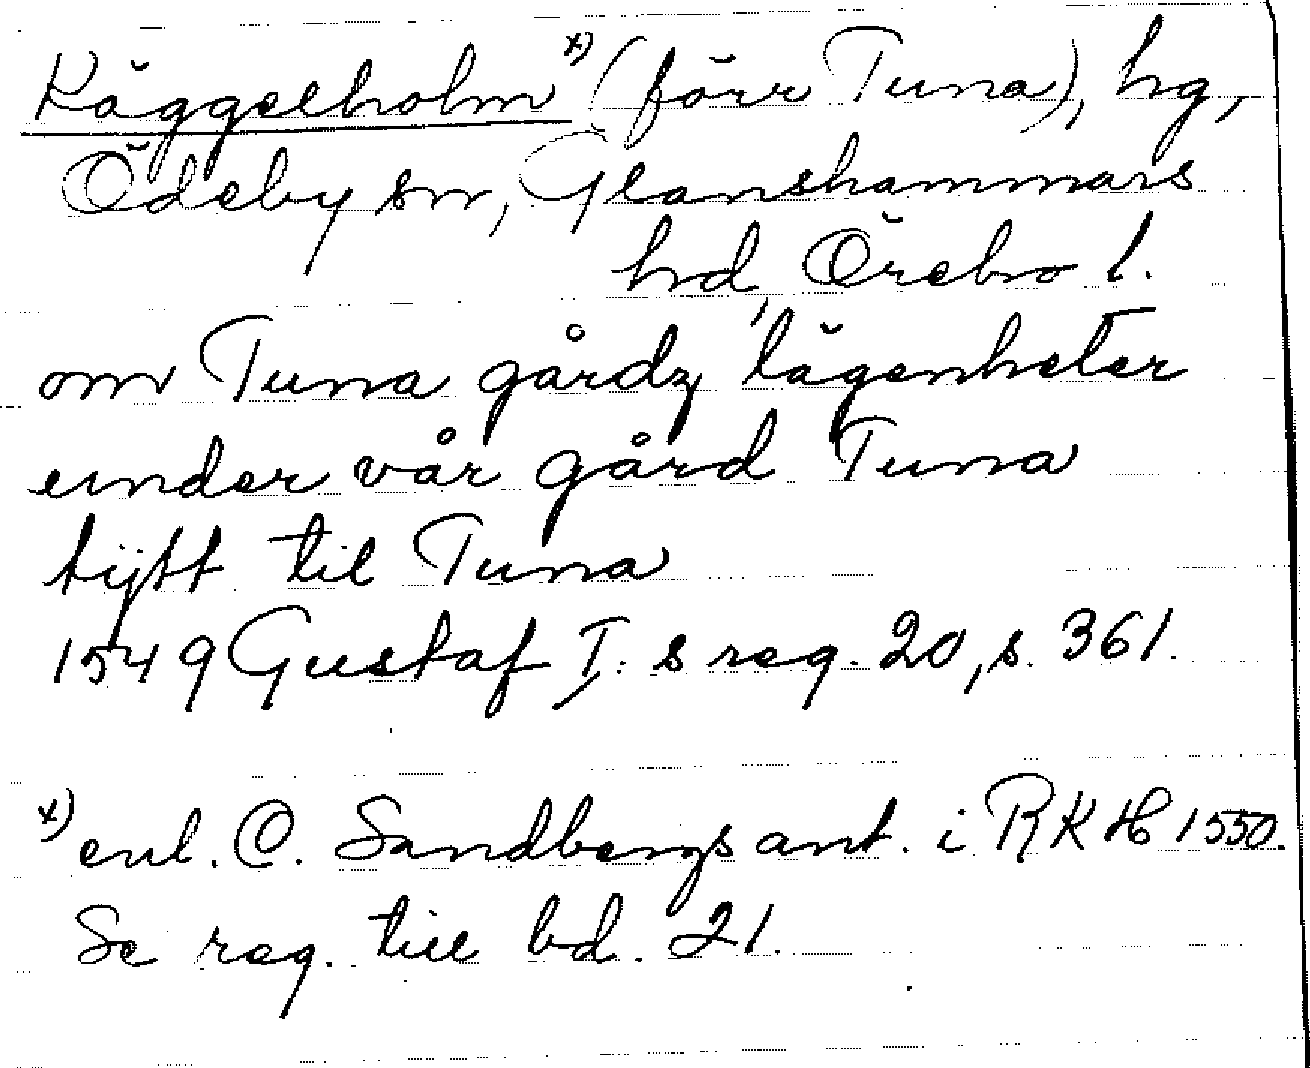 Käggelholm x) (förr Tuna), hg,
Ödeby sn, Glanshammars
hd, Örebro l.
om Tuna gårdz lägenheter
under vår gård Tuna
tijtt til Tuna
1549 Gustaf I:s reg. 20, s. 361.
x) enl. C. Sandbergs ant. i RKH 1550.
Se reg. till bd. 21.